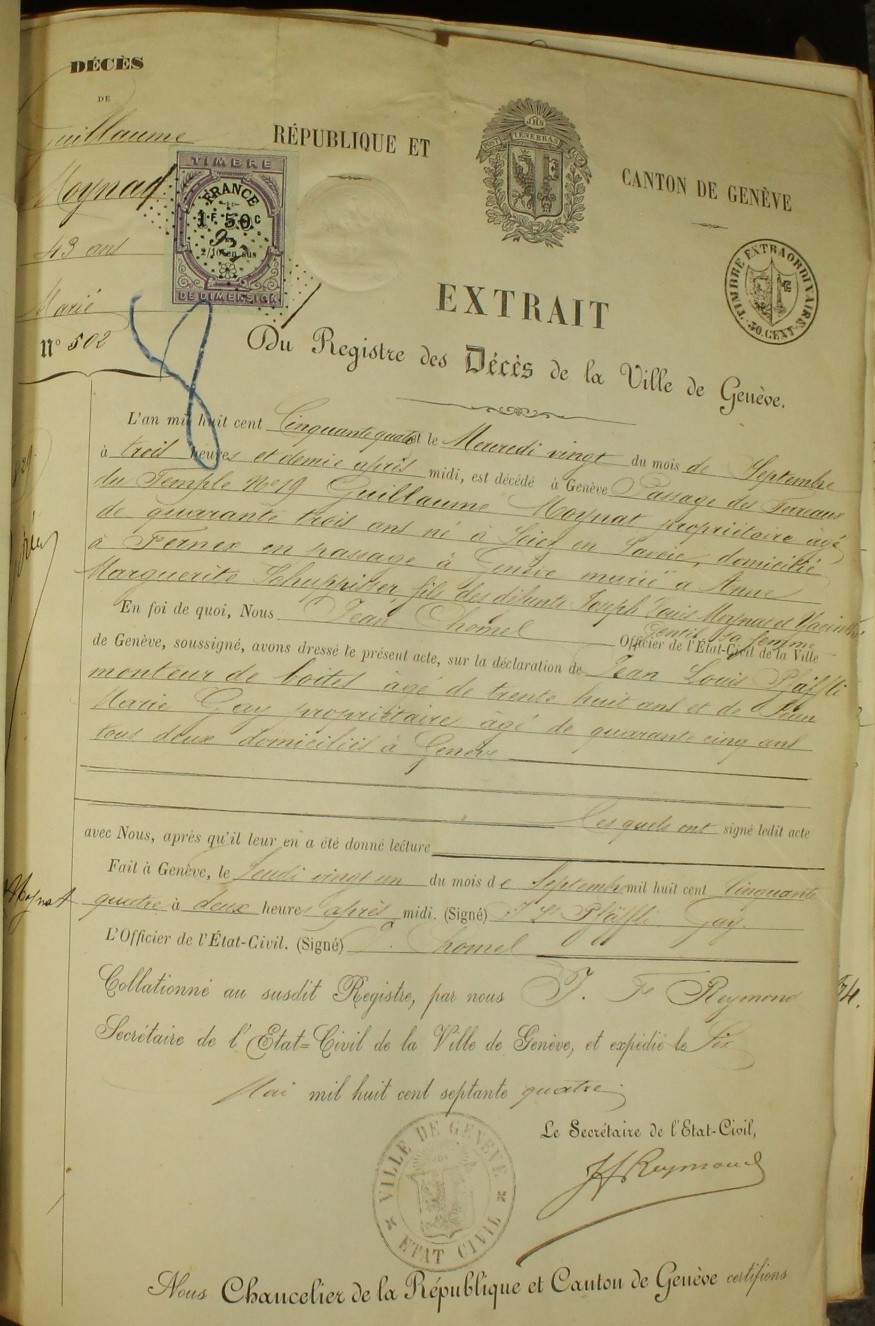 DÉCÈS
DE
Guillaume
Moynat
43 ans
Marié
N° 502
TIMBRE
FRANCE
1F 50c
2/10 en sus
DE DIMENSION
RÉPUBLIQUE ET
CANTON DE GENÈVE
POST TENEBRAS
JHS
TIMBRE EXTRAORDINAIRE
50 CENT
8
EXTRAIT
Du Registre des Décès de la Ville de Genève.
L'an mil huit cent Cinquante quatre et le Mercredi vingt du mois de Septembre
à trois heures et demie après midi, est décédé à Genève Passage des Terreaux
du Temple No 19 Guillaume Moynat propriétaire âgé
de quarante trois ans né à en Savoie, domicilié
à Fernex en passage à Genève marié à Anne
Marguerite fils des défunts Joseph Louis Moynat et
Gentil sa femme
En foi de quoi, Nous Jean Chomel Officier de l'État-Civil de la Ville
de Genève, soussigné, avons dressé le présent acte, sur la déclaration de Jean Louis Pfäffli
monteur de boites âgé de trente huit ans et de Jean
Marie Gay propriétaire âgé de quarante cinq ans
tous deux domiciliés à Genève
Lesquels ont signé ledit acte
avec Nous, après qu'il leur en a été donné lecture
Fait à Genève, le Jeudi vingt un du mois de Septembre mil huit cent Cinquante
quatre à deux heures après midi. (Signé) J Ls Pfäffli Gay.
L'Officier de l'État-Civil. (Signé) J. Chomel
Collationné au susdit Registre, par nous J. Fs Reymond
Secrétaire de l'Etat=Civil de la Ville de Genève, et expédié le Six
Mai mil huit cent septante quatre.
Le Secrétaire de l'Etat-Civil,
JF Reymond
VILLE DE GENÈVE
ETAT CIVIL
Nous Chancelier de la République et Canton de Genève certifions
Moynat
54.